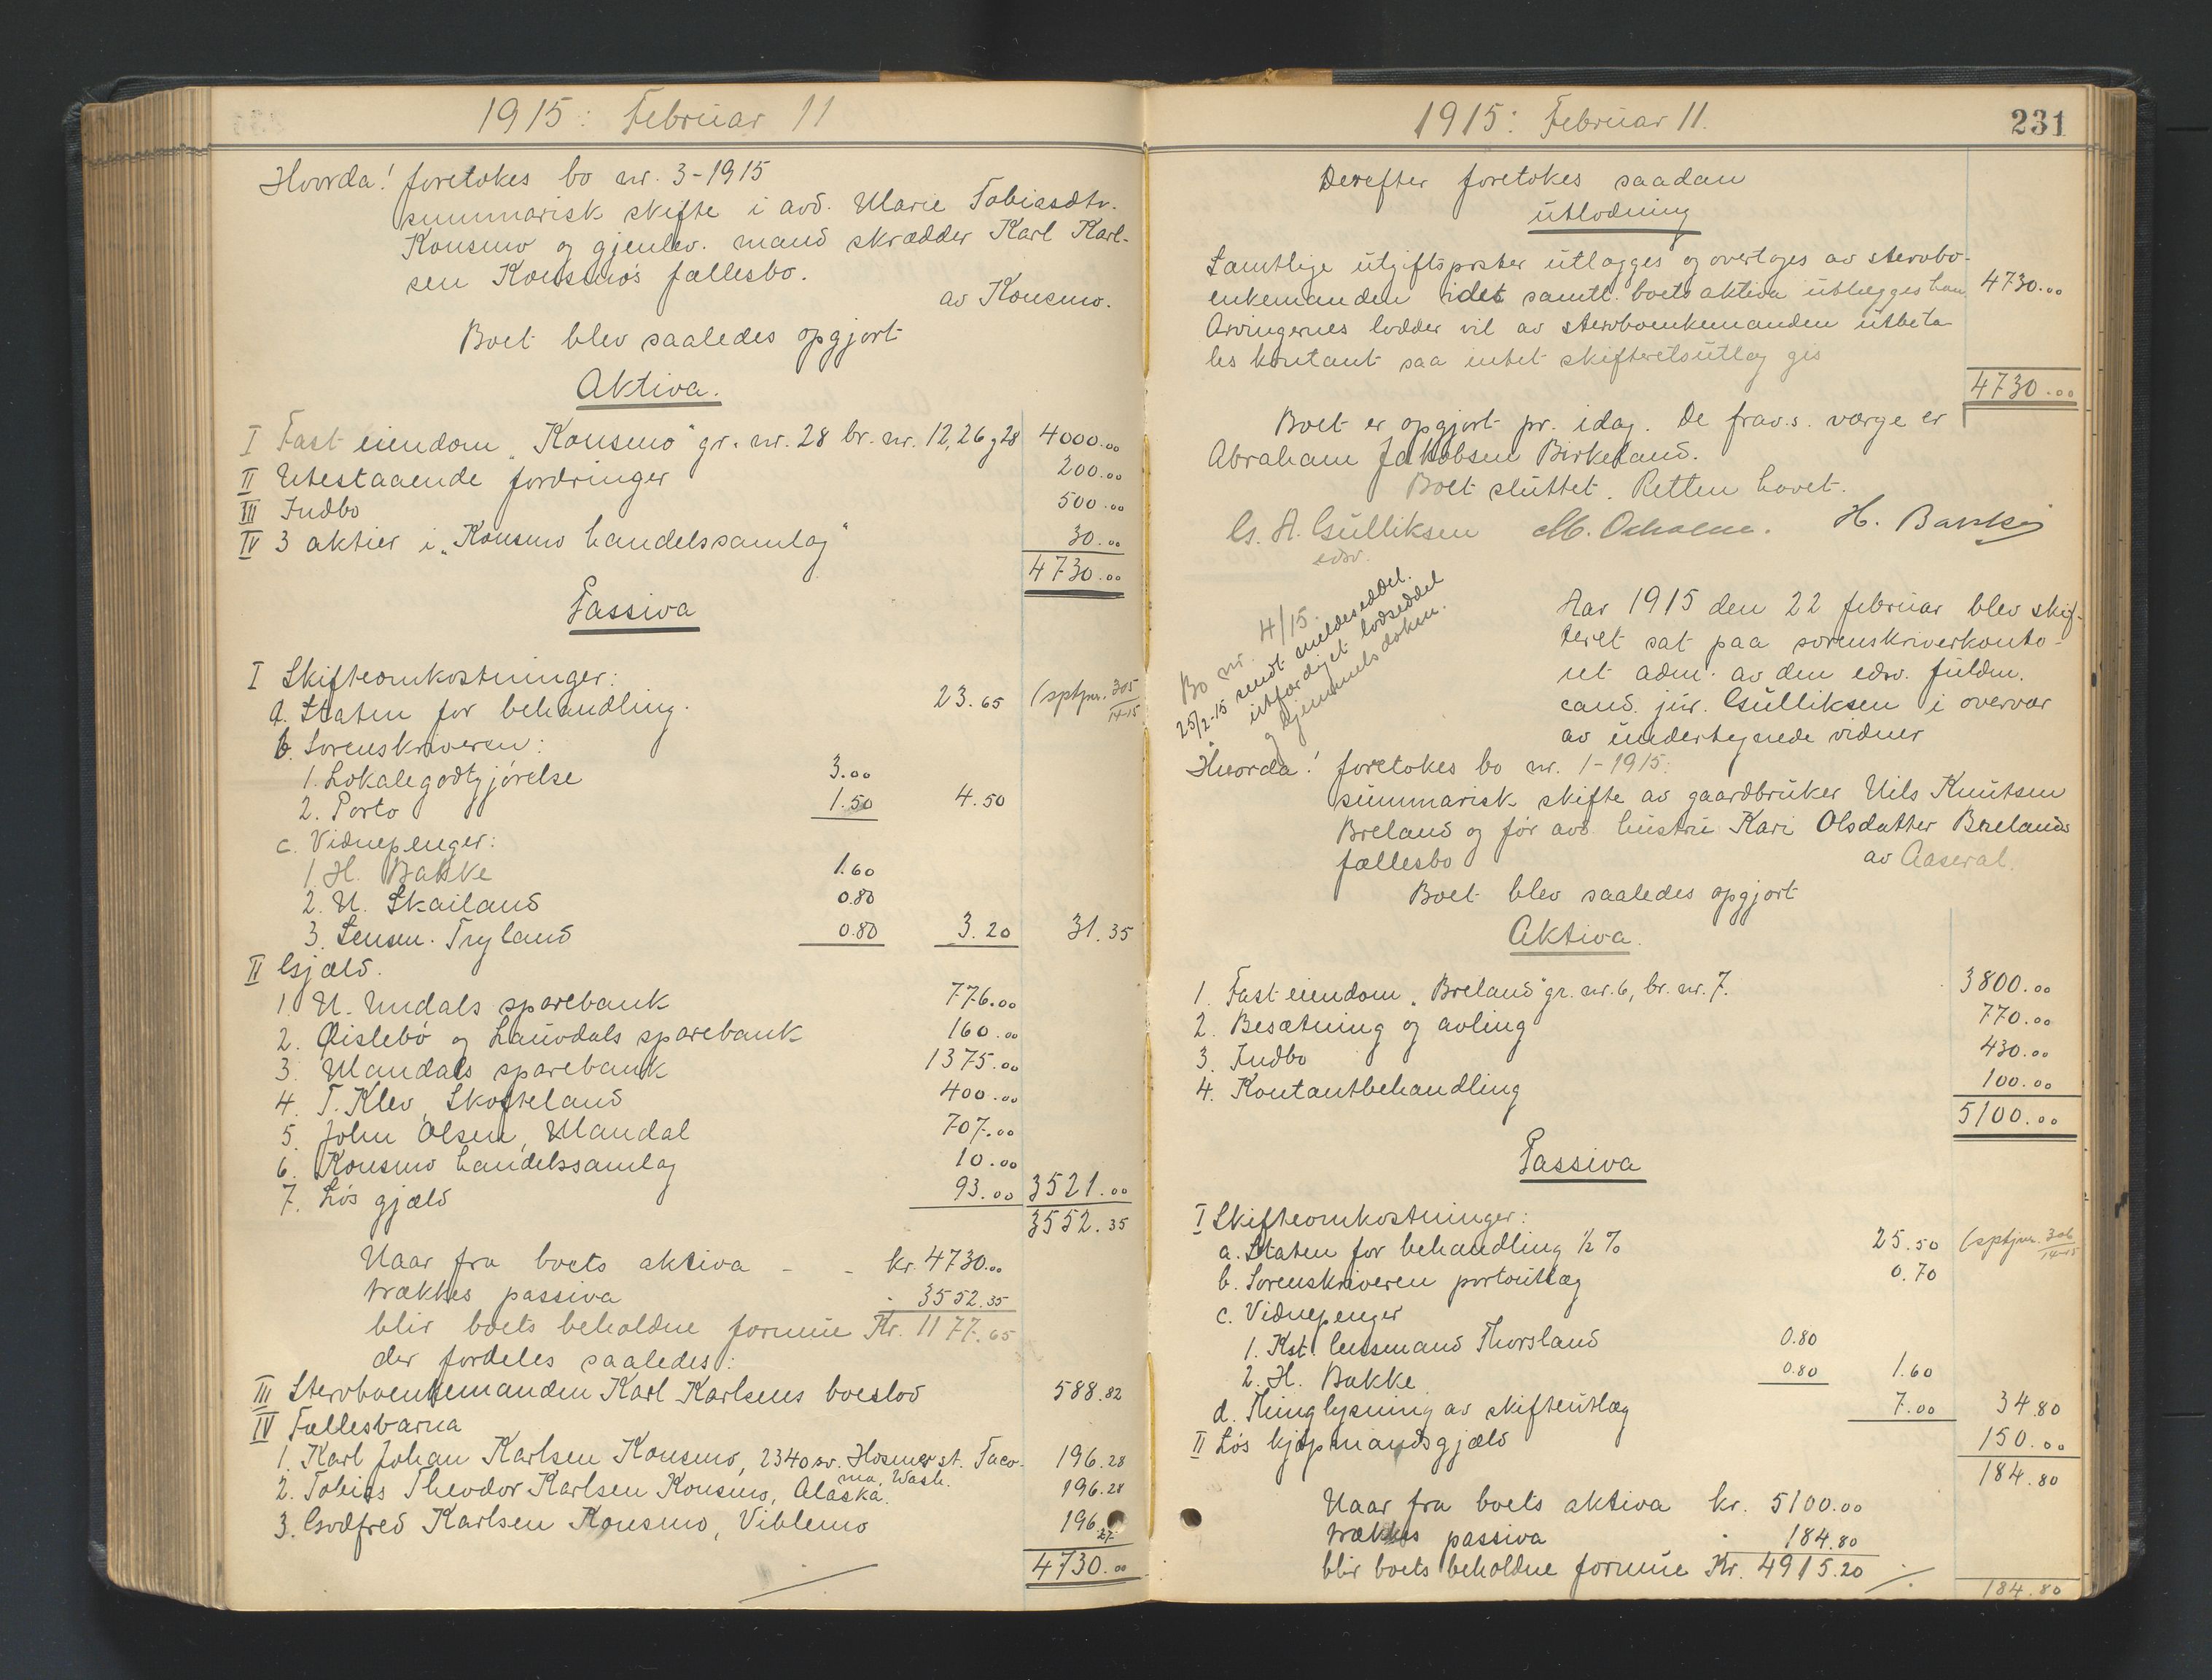 1915: Februar 11
Hvorda! foretokes bo nr. 3-1915
summarisk skifte i avd. Marie Tobiasdtr.
Konsmo og gjenlev. mand skrædder Karl Karl-
sen Konsmo's fællesbo.
av Konsmo.
Boet blev saaledes opgjort
Aktiva.
I Fast eiendom "Konsmo" gr. nr. 28 br. nr. 12, 26 g 28 4000.00
II Utestaaende fordringer 200.00
III Indbo 500.00
IV 3 aktier i "Konsmo handelssamlag" 30.00
4730.00
Passiva
I Skifteomkostninger:
a. Staten for behandling. 23.65 (sptjnr. 305/14-15
b. Sorenskriveren:
1. Lokalegodtgjørelse 3.00
2. Porto 1.50 4.50
c. Vidnepenger:
1 H. Bakke 1.60
2. N. Skailand 0.80
3. Lensm. Tryland 0.80 3.20 31.35
II Gjæld.
1. N. Undals sparebank 776.00
2. Øislebø og Lauvdals sparebank 160.00
3. Mandals sparebank 1375.00
4. T. Klev, Skofteland 400.00
5. John Olsen, Mandal 707.00
6. Konsmo handelssamlag 10.00
7. Løs gjæld 93.00 3521.00
3552.35
Naar fra boets aktiva - - kr. 4730.00
trækkes passiva - 3552.35
blir boets beholdne formue Kr. 1177.65
der fordeles saaledes:
III Stervboenkemanden Karl Karlsens boeslod 588.82
IV Fællesbarna
1. Karl Johan Karlsen Konsmo, 2340 so. Hosmer st. Taco- 196.28
ma, Wash.
2. Tobias Theodor Karlsen Konsmo, Alaska. 196.28
3. Godfred Karlsen Konsmo, Viblemo 196.27
4730.00
1915: Februar 11. 231
Derefter foretokes saadan
utlodning
Samtlige utgiftsposter utlægges og overtages av stervbo-
enkemanden idet samtl. boets aktiva utlægges ham 4730.00
Arvingernes lodder vil av stervboenkemanden utbeta
les kontant saa intet skifteretsutlæg gis
4730.00
Boet er opgjort pr. idag. De fravs. værge er
Abraham Jakobsen Birkeland.
Boet sluttet. Retten hævet.
G. A. Gulliksen H. Bakke
edsv.
Bo nr. 4/15.
25/2-15 sendt meldeseddel.
utfærdiget lodseddel
og hjemmelsdokm.
Aar 1915 den 22 februar blev skif-
teret sat paa sorenskriverkonto-
ret adm. av den edsv. fuldm.
cand. jur. Gulliksen i overvær
av undertegnede vidner
Hvorda! foretokes bo nr. 1-1915:
summarisk skifte av gaardbruker Nils Knutsen
Breland og før avd. hustru Kari Olsdatter Brelands
fællesbo av Aaseral.
Boet blev saaledes opgjort
Aktiva.
1. Fast eiendom "Breland" gr. nr. 6, br. nr. 7. 3800.00
2. Besætning og avling 770.00
3. Indbo 430.00
4. Kontantbehandling 100.00
5100.00
Passiva
I Skifteomkostninger:
a. Staten for behandling ½ % 25.50 (sptjnr. 306/14-15
b. Sorenskriveren portoutlæg 0.70
c. Vidnepenger
1. Kst. lensmand Thorsland 0.80
2. H. Bakke 0.80 1.60
d. Thinglysning av skifteutlæg 7.00 34.80
II Løs kjøpmandsgjæld 150.00
184.80
Naar fra boets aktiva kr. 5100.00
trækkes passiva - 184.80
blir boets beholdne formue Kr. 4915.20
184.80